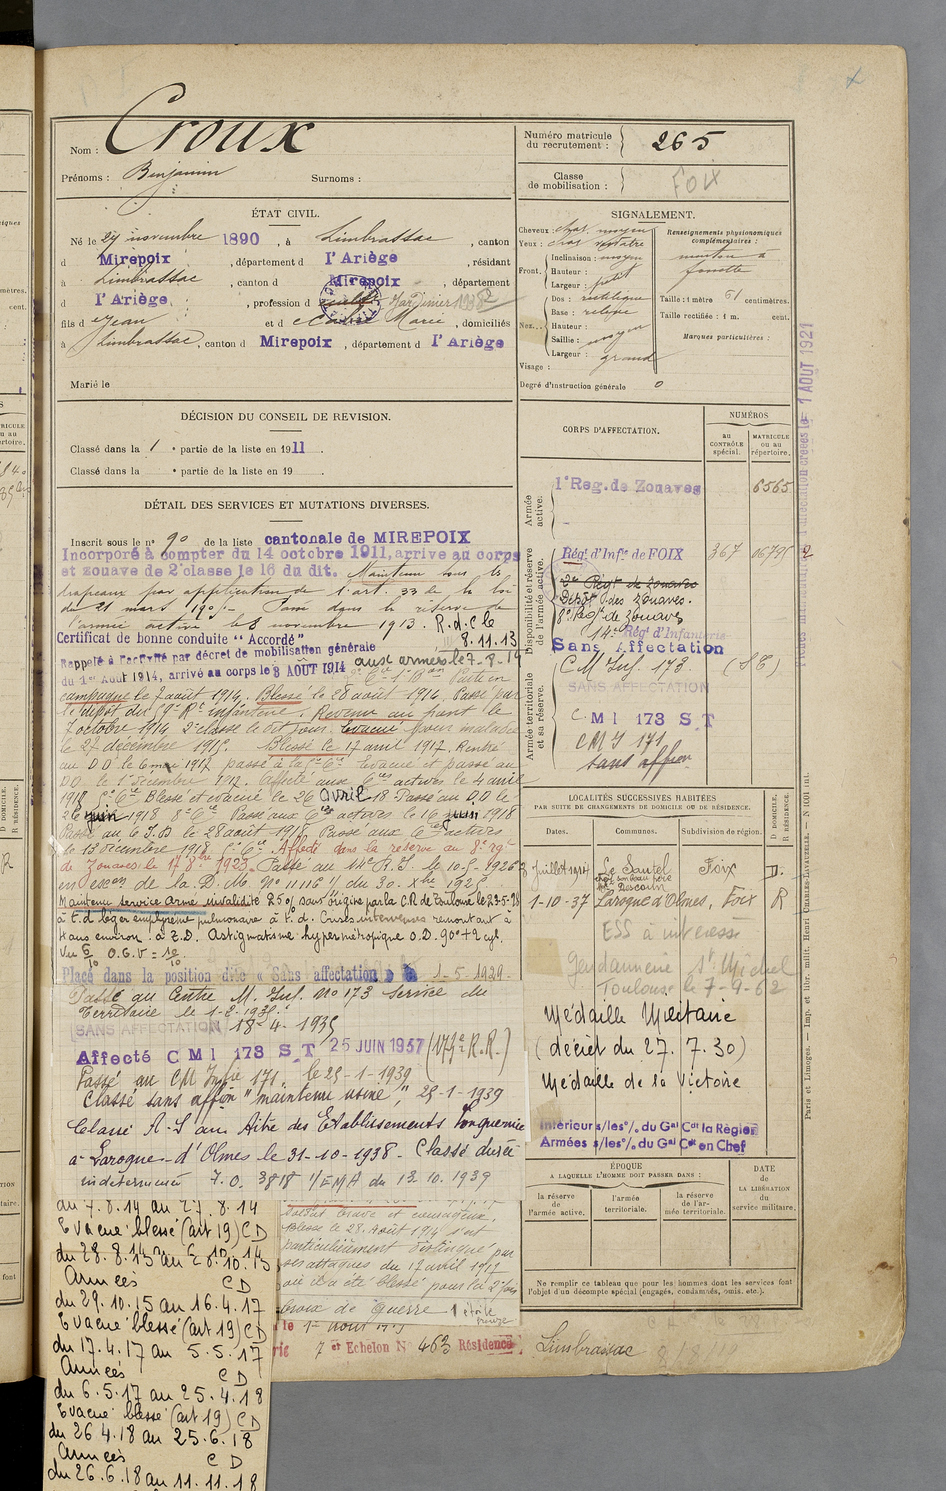 Nom : Croux
Prénoms : Benjamin Surnoms :
Numéro matricule du recrutement : 265
Classe de mobilisation : FOIX
ÉTAT CIVIL.
Né le 24 novembre 1890, à Limbrassac, canton
d Mirepoix, département d l'Ariège, résidant
à Limbrassac, canton d Mirepoix, département
d l'Ariège, profession d
fils d Jean et d Marie, domiciliés
à Limbrassac, canton d Mirepoix, département d l'Ariège
Marié le
SIGNALEMENT.
Cheveux : chat. moyen
Yeux :
Front. Inclinaison : moyen
Hauteur :
Largeur : petit
Nez. Dos : rectiligne
Base : relevé
Hauteur :
Saillie : moyen
Largeur : grand
Visage :
Renseignements physionomiques complémentaires :
menton à
fossette
Taille : 1 mètre 61 centimètres.
Taille rectifiée : 1 m. cent.
Marques particulières :
Degré d'instruction générale 0
DÉCISION DU CONSEIL DE REVISION.
Classé dans la 1 e partie de la liste en 1911.
Classé dans la e partie de la liste en 19
DÉTAIL DES SERVICES ET MUTATIONS DIVERSES.
Inscrit sous le n° 90 de la liste cantonale de MIREPOIX
Incorporé à compter du 14 octobre 1911, arrive au corps
et zouave de 2e classe le 16 du dit. Maintenu sous les
drapeaux par application de l'art. 33 de la loi
du 21 mars 190 . Passé dans la réserve de
l'armée active le 8 novembre 1913. R.d.c le
8.11.13
Certificat de bonne conduite "Accordé"
Rappelé à l'activité par décret de mobilisation générale
du 1er Août 1914, arrivé au corps le 3 AOÛT 1914 aux armées le 7-8-14
Parti en
campagne le 7 août 1914. Blessé le 28 août 1914. Passé par
le dépôt du Rt infanterie. Revenu au front le
7 octobre 1914. 2e classe le dit jour. Evacué pour maladie
le 27 décembre 1915. Blessé le 17 avril 1917. Rentré
au DD le 6 mai 1917 passé à la Cie Evacué et passé au
DD. le 1er décembre 1917. Affecté aux Cies actives le 4 avril
1918 Cie Blessé et évacué le 26 avril 18 Passé au DD le
26 juin 1918 8e Cie Passé aux Cies actives le 16 juin 1918
Passé au C.I.D le 28 août 1918. Passé aux Cies actives
le 13 décembre 1918 Cie Affecté dans la réserve au 8e rgt
de Zouaves le 17 8bre 1923. Passé au 14e R.I. le 10-5-1926
en exon de la D.M. No 11116 1/ du 30. Xbre 1925
Maintenu service armé invalidité 25% sans origine par la C.R de Toulouse le 23-5-28
à t.d léger emphysème pulmonaire à t.d. Crises intervenues remontant à
4 ans environ. à Z.D. Astigmatisme hypermétropique O.D. 90°+2 cyl.
Vu 5/10 O.G.V = 10/10
Placé dans la position dite « Sans affectation » le 1-5-1929
Passé au Centre M. Inf. No 173 Service du
Territoire le 1-2-1935.
SANS AFFECTATION 18-4-1935
Affecté CMI 173 S.T 25 JUIN 1937
Passé au CM Infie 171. le 25-1-1939
Classé sans affon "maintenu usine", 25-1-1939
Classé A-S au titre des Etablissements
à Laroque-d'Olmes le 31-10-1938. Classé durée
indéterminée 7.0. 3818 1/EMA du 12.10.1939
CORPS D'AFFECTATION.
NUMÉROS
AU CONTRÔLE SPÉCIAL.
MATRICULE OU AU RÉPERTOIRE.
Armée active.
1er Reg. de Zouaves 6565
Disponibilité et réserve de l'armée active.
Régt d'Infie de FOIX 367
2e Régt de Zouaves
Dépôt des Zouaves.
8e Regt de Zouaves
14e Régt d'Infanterie
Sans Affectation
Armée territoriale et sa réserve.
CM Inf. 173 (ST)
SANS AFFECTATION
CMI 173 S.T
CMI 171
sans affon
LOCALITÉS SUCCESSIVES HABITÉES
PAR SUITE DE CHANGEMENTS DE DOMICILE OU DE RÉSIDENCE.
Dates. Communes. Subdivision de région. D. DOMICILE. R. RÉSIDENCE.
juillet 1914 Le Sautel Foix D.
1-10-37 Laroque d'Olmes, Foix R
ESS à intéressé
Gendarmerie St Michel
Toulouse le 7-9-62
Médaille Militaire
(décret du 27. 7. 30)
Médaille de la Victoire
Intérieur s/les o/. du Gal Cdt la Région
Armées s/les o/. du Gal Cdt en Chef
ÉPOQUE
A LAQUELLE L'HOMME DOIT PASSER DANS :
la réserve de l'armée active.
l'armée territoriale.
la réserve de l'armée territoriale.
DATE DE LA LIBÉRATION du service militaire.
Ne remplir ce tableau que pour les hommes dont les services font
l'objet d'un décompte spécial (engagés, condamnés, omis, etc.).
Limbrassac
Paris et Limoges. — Imp. et libr. milit. Henri CHARLES-LAVAUZELLE. —
1 AOUT 1921
au 7.8.14 au 27.8.14
Evacué blessé (art 19) CD
du 28.8.14 au
Armées CD
du 29.10.15 au 16.4.17
Evacué blessé (art 19) CD
du 17.4.17 au 5.5.17
Armées CD
du 6.5.17 au 25.4.18
Evacué blessé (art 19) CD
du 26.4.18 au 25.6.18
Armées CD
du 26.6.18 au 11.11.18
soldat brave et courageux.
Blessé le 28 Août 1914 s'est
particulièrement distingué par
ses attaques du 17 avril 1917
où il a été blessé pour la 2e fois
Croix de Guerre 1 étoile
bronze
Echelon N° 463 Résidence